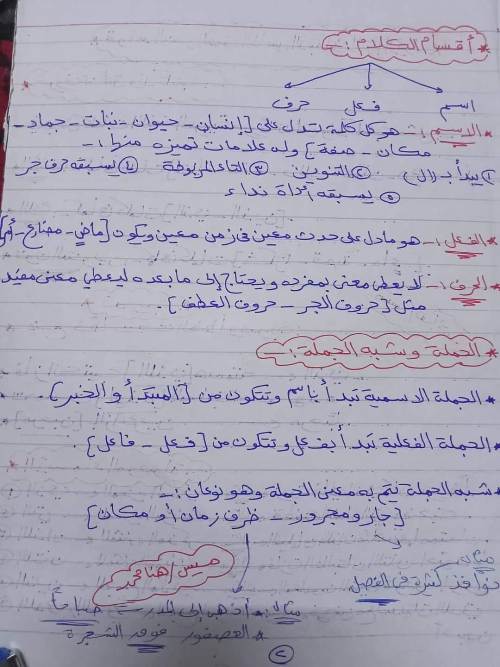 * أقسام الكلام :-
اسم فعل حرف
* الاسم :- هو كل كلمة تدل على [إنسان - حيوان - نبات - جماد -
مكان - صفة] وله علامات تميزه منها :-
١) يبدأ بـ (ال) ٢) التنوين ٣) التاء المربوطة ٤) يسبقه حرف جر
٥) يسبقه أداة نداء
* الفعل :- هو ما دل على حدث معين في زمن معين ويكون [ماضي - مضارع - أمر]
* الحرف :- لا يُعطي معنى بمفرده ويحتاج إلى ما بعده ليعطي معنى مفيد
مثل [حروف الجر - حروف العطف].
* الجملة وشبه الجملة :-
* الجملة الاسمية تبدأ باسم وتتكون من [المبتدأ والخبر].
* الجملة الفعلية تبدأ بفعل وتتكون من [فعل - فاعل].
* شبه الجملة يتم به معنى الجملة وهو نوعان :-
[جار ومجرور - ظرف زمان أو مكان]
مثال
نوافذ كثيرة في الفصل
ميس / هنا محمد
مثال * أذهب إلى المدرسة صباحاً
* العصفور فوق الشجرة
٢